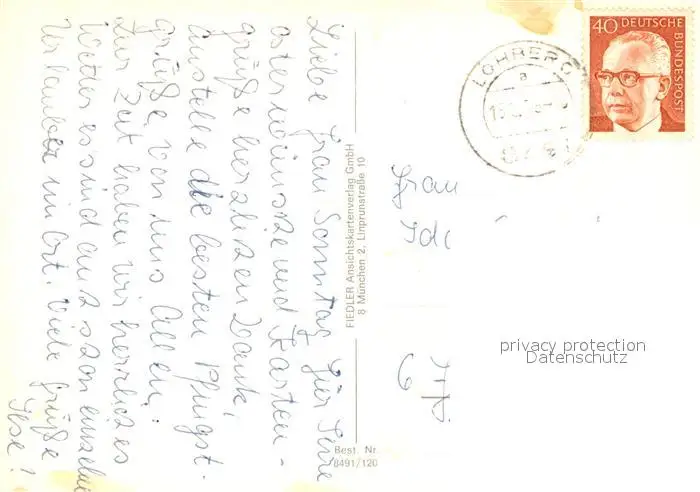 Liebe Frau Sonntag! Für Ihre
osterwünsche und Karten-
grüße herzlichen Dank,
Anstelle die besten Pfingst.
grüße von uns Allen!
Zur Zeit haben wir herrliches
Wetter es sind auch schon einzelne
Urlauber im Ort. Viele Grüße
Ilse!
FIEDLER Ansichtskartenverlag GmbH
8 München 2, Linprunstraße 10
Best. Nr.
8491/120
40 DEUTSCHE
BUNDESPOST
LOHBERG
a
Frau
privacy protection
Datenschutz
6